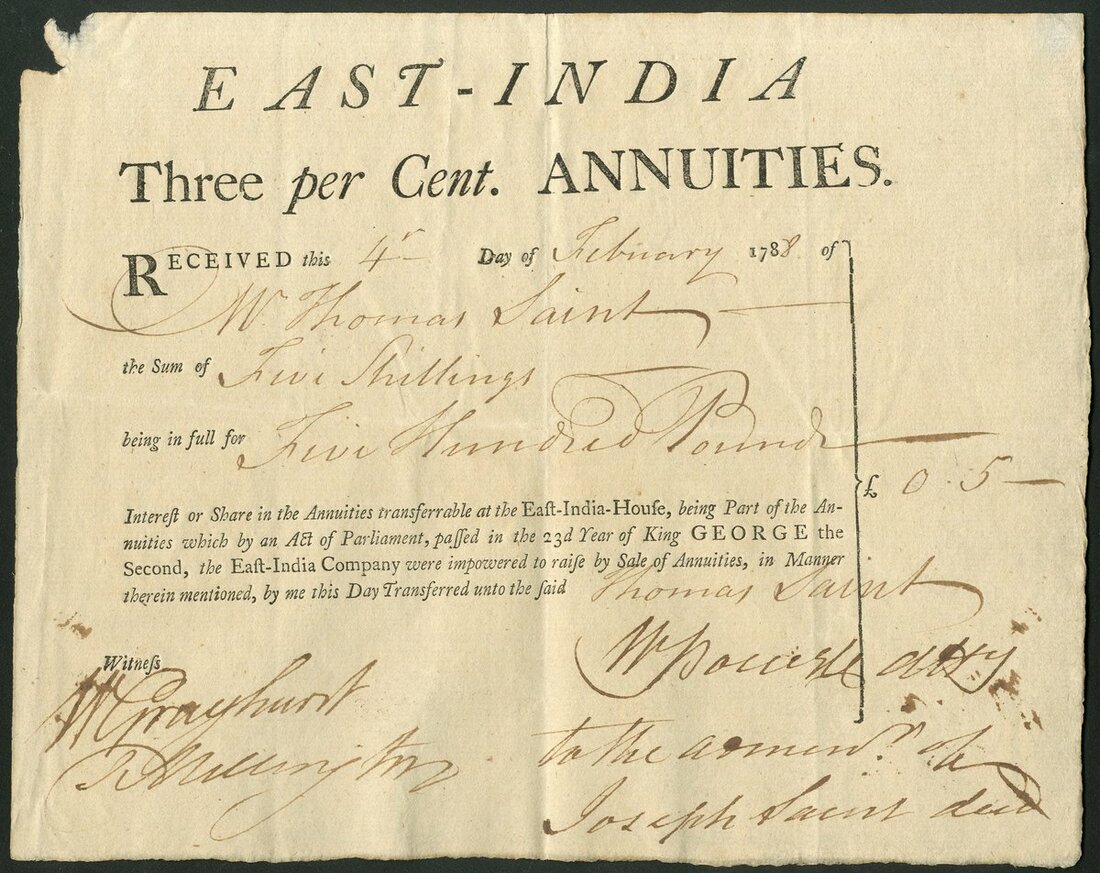 EAST-INDIA
Three per Cent. ANNUITIES.
RECEIVED this 4r Day of February 1788 of
Mr Thomas Saint
the Sum of Five Shillings
being in full for Five Hundred Pounds
£ 0.5
Intereſt or Share in the Annuities transferrable at the Eaſt-India-Houſe, being Part of the An-
nuities which by an Act of Parliament, paſſed in the 23d Year of King GEORGE the
Second, the Eaſt-India Company were impowered to raiſe by Sale of Annuities, in Manner
therein mentioned, by me this Day Transferred unto the ſaid Thomas Saint
Witneſs
W Grayhurst
to the of
Joseph Saint decd